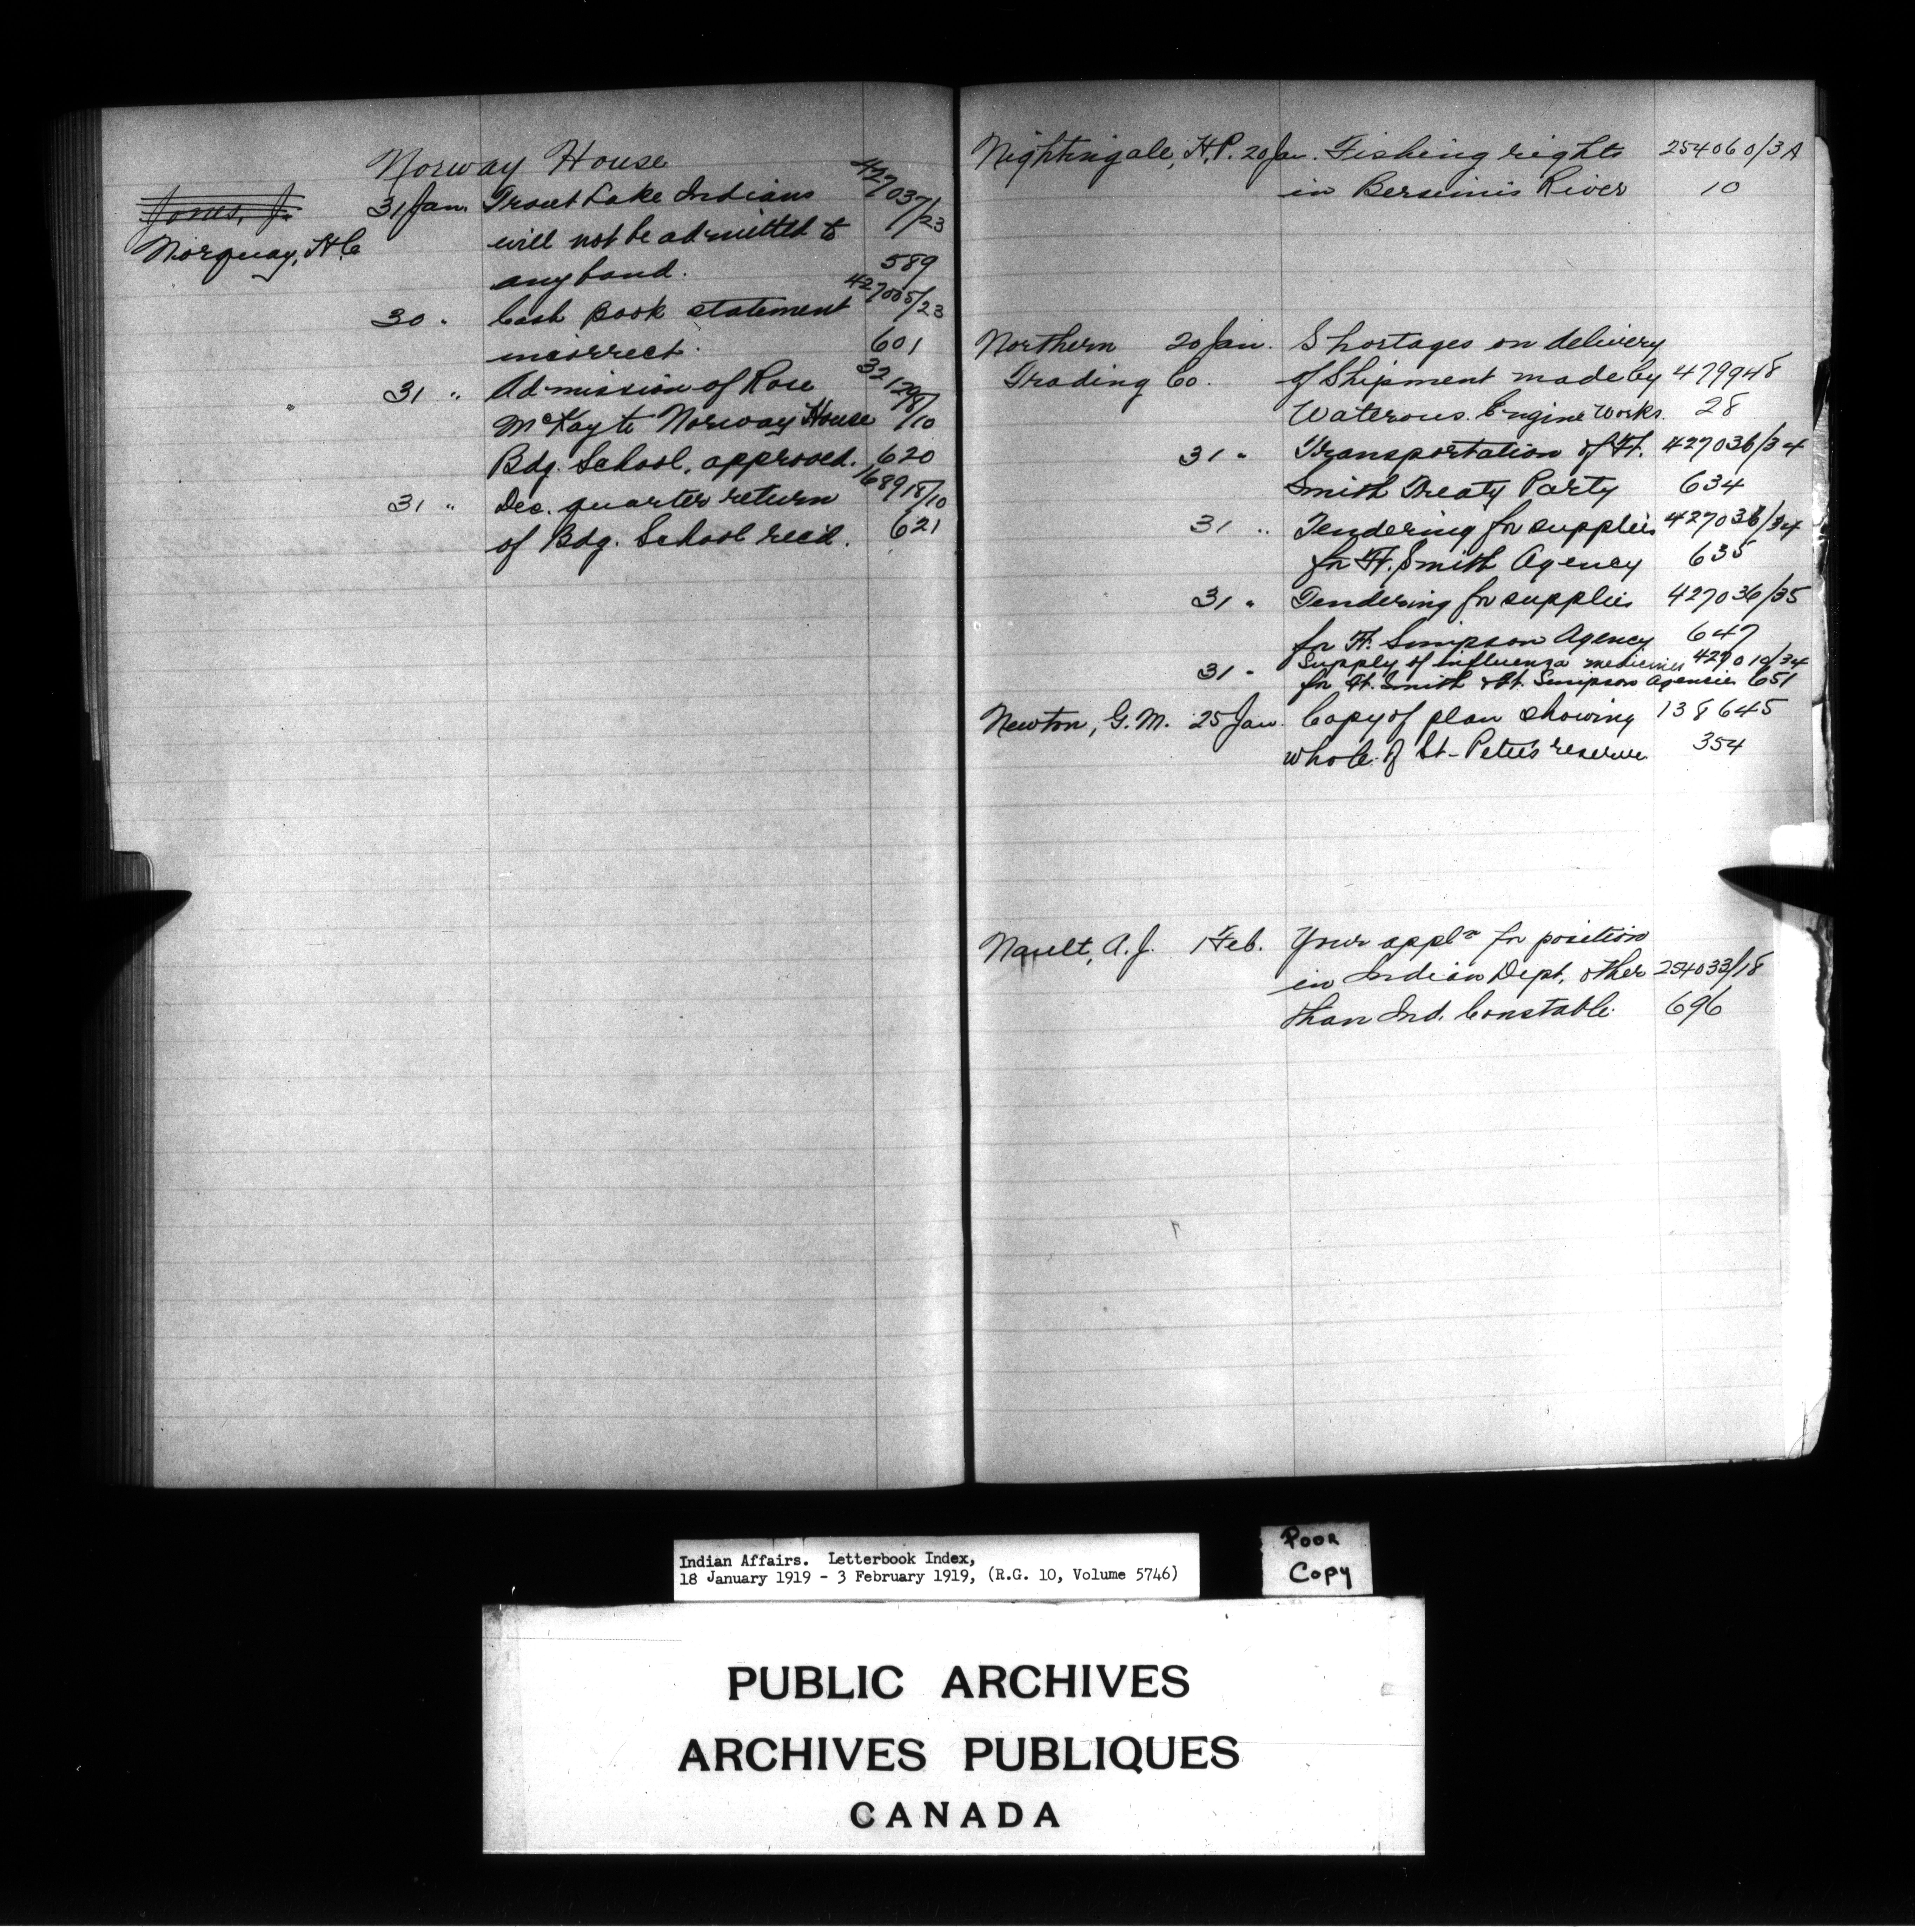 Norway House
Jones, J. 31 Jan. Trout Lake Indians 427037/23
Norquay, H.C. will not be admitted to
any band. 589
30 " Cash Book statement 427005/23
incorrect. 601
31 " Admission of Rose
McKay to Norway House
Bdg. School, approved. 620
31 " Dec. quarter return 168918/10
of Bdg. School rec'd. 621
Nightingale, H.P. 20 Jan. Fishing rights 254060/3A
in Bersimis River 10
Northern 20 Jan. Shortages on delivery
Trading Co. of Shipment made by 479948
Waterous Engine Works. 28
31 " Transportation of Ft. 427036/34
Smith Treaty Party 634
31 " Tendering for supplies 427036/34
for Ft. Smith Agency 635
31 " Tendering for supplies 427036/35
for Ft. Simpson Agency 647
31 " Supply of influenza medicines 427010/34
for Ft. Smith & Ft. Simpson Agencies 651
Newton, G.M. 25 Jan. Copy of plan showing 138645
whole of St. Peter's reserve 354
Nault, A.J. 1 Feb. Your appln for position
in Indian Dept. other 254033/18
than Ind. Constable. 696
Indian Affairs. Letterbook Index,
18 January 1919 - 3 February 1919, (R.G. 10, Volume 5746)
Poor
Copy
PUBLIC ARCHIVES
ARCHIVES PUBLIQUES
CANADA